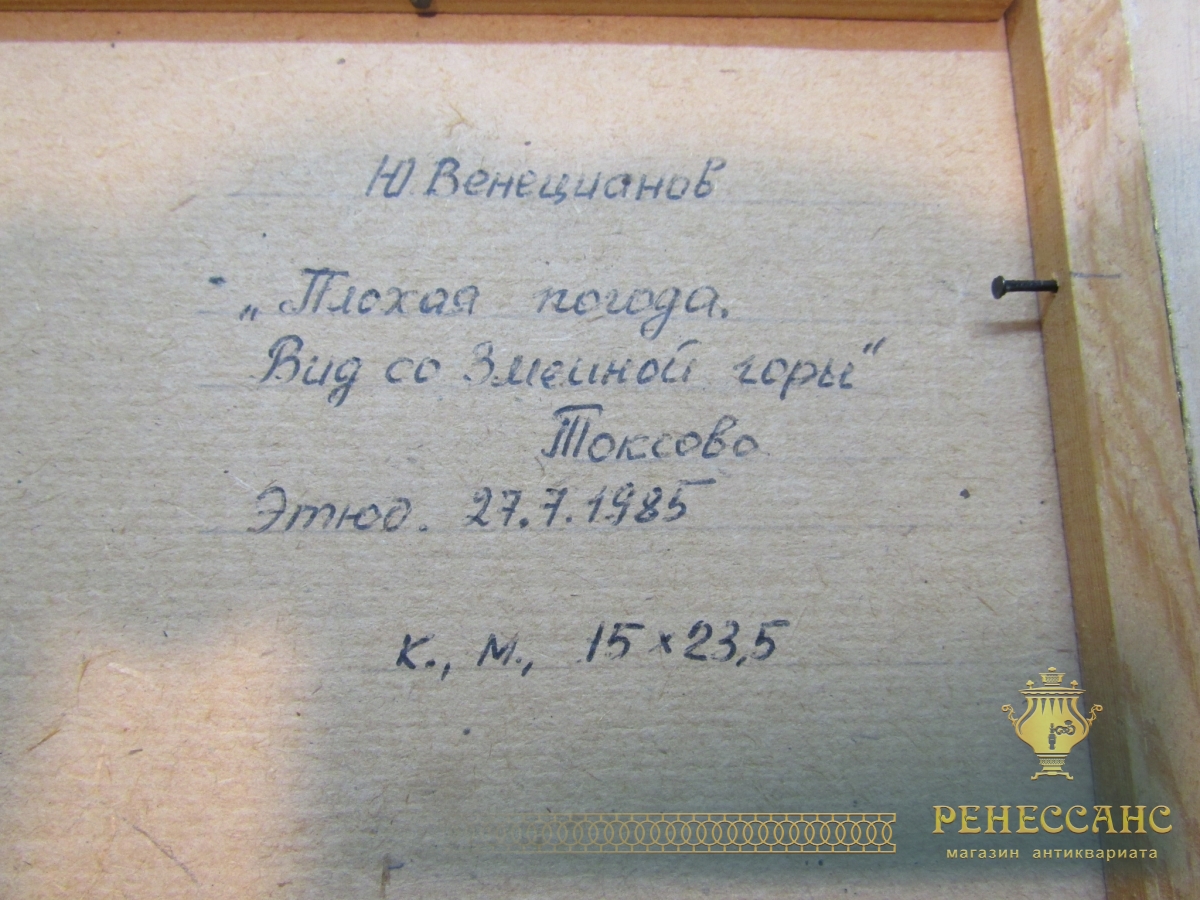 Ю. Венецианов
„Плохая погода.
Вид со Змеиной горы“
Токсово
Этюд. 27.7.1985
к., м., 15×23,5
РЕНЕССАНС
магазин антиквариата